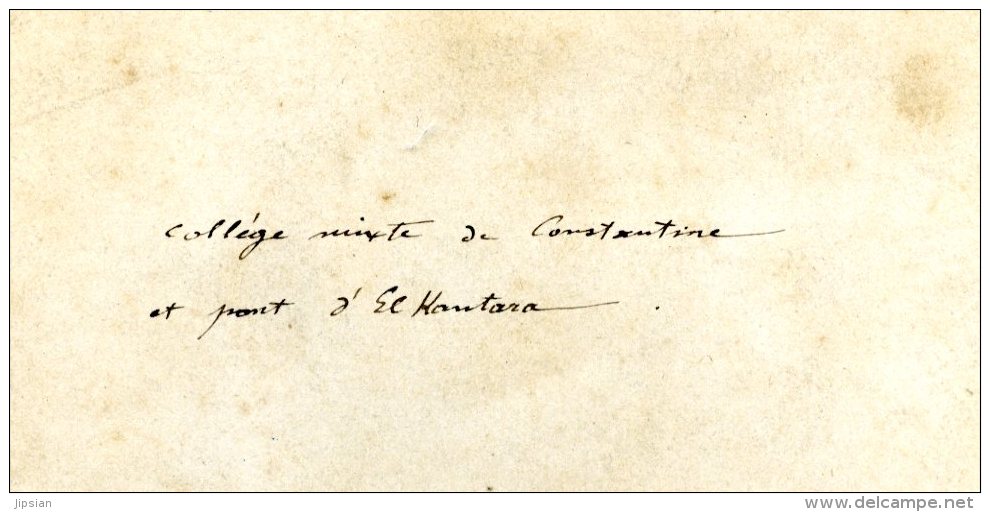 collége mixte de Constantine
et pont d'El Kantara .
jipsian
delcampe.net